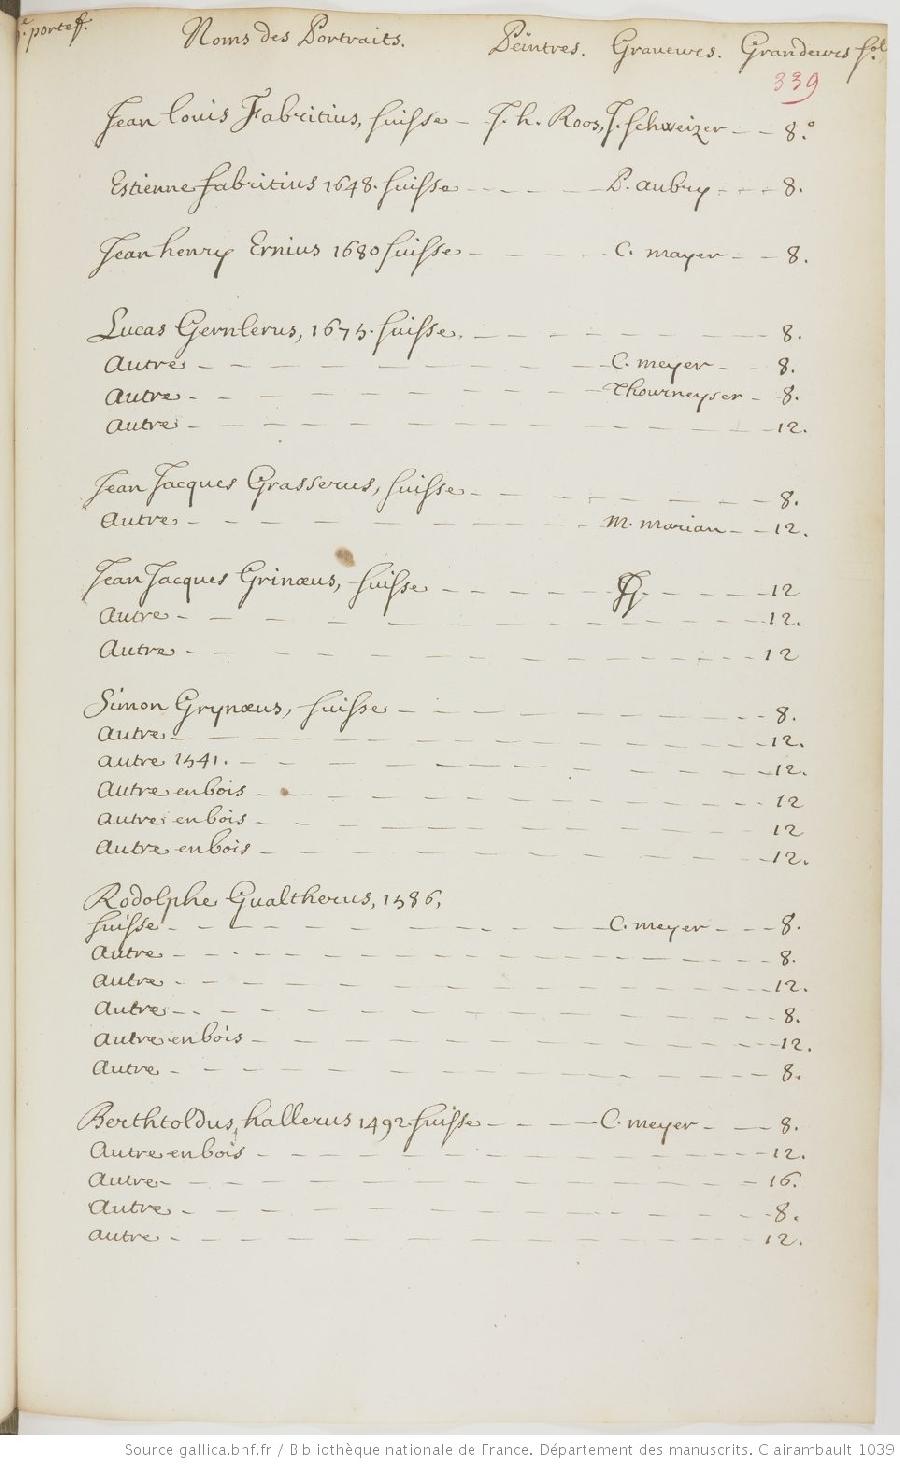 e. portef. Noms des Portraits. Peintres. Graveurs. Grandeurs fol.
339
Jean Louis Fabritius, suisse - J. h. Roos, J. schweizer - - 8.°
Estienne fabritius 1648. suisse - - - P. aubry - - - 8.
Jean henry Ernius 1680 suisse - - - C. mayer - - 8.
Lucas Gernlerus, 1675. suisse. - - - 8.
Autre - - - C. meyer - 8.
Autre - - - Thourneyser - 8.
Autre - - - 12.
Jean Jacques Grasserus, suisse - - - 8.
Autre - - - M. Marian - - 12.
Jean Jacques Grinœus, suisse - - - 12
Autre - - - 12.
Autre - - - 12
Simon Grynœus, suisse - - - 8.
Autre - - - 12.
autre 1541. - - - 12.
Autre en bois - - - 12
autre en bois - - - 12
Autre en bois - - - 12.
Rodolphe Gualtherus, 1586,
suisse - - - C. meyer - - - 8.
Autre - - - 8.
Autre - - - 12.
Autre - - - 8.
autre en bois - - - 12.
Autre - - - 8.
Berthtoldus, hallerus 1492. suisse - - - C. meyer - - 8.
Autre en bois - - - 12.
Autre - - - 16.
Autre - - - 8.
autre - - - 12.
Source gallica.bnf.fr / Bibliothèque nationale de France. Département des manuscrits. Clairambault 1039